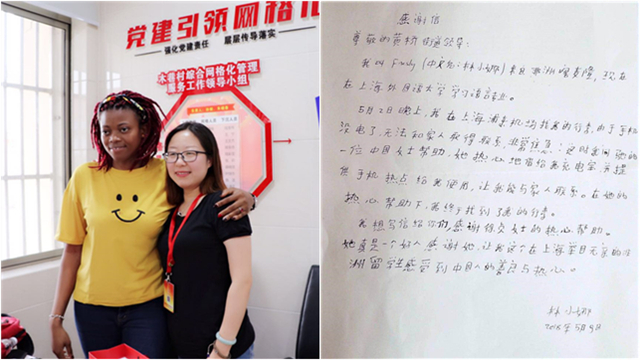 党建引领网格
强化党建责任 层层传导落实
木巷村综合网格化管理
服务工作领导小组
感谢信
尊敬的黄桥街道领导：
我叫（中文名：林小娜）来自非洲喀麦隆，现在
在上海外国语大学学习语言专业。
5月2日晚上，我在上海浦东机场找我的行李，由于手机
没电了，无法和家人取得联系，非常焦急，这时我向
一位中国女士帮助，她热心地借给我充电宝，并提
供手机热点给我使用，让我能与家人联系。在她的
热心帮助下，我终于找到了我的行李。
我想写信给你们，感谢徐女士的热心帮助。
她真是一个好人，感谢她，让我这个在上海举目无亲的非
洲留学生感受到中国人的善良与热心。
林小娜
2018年5月9日